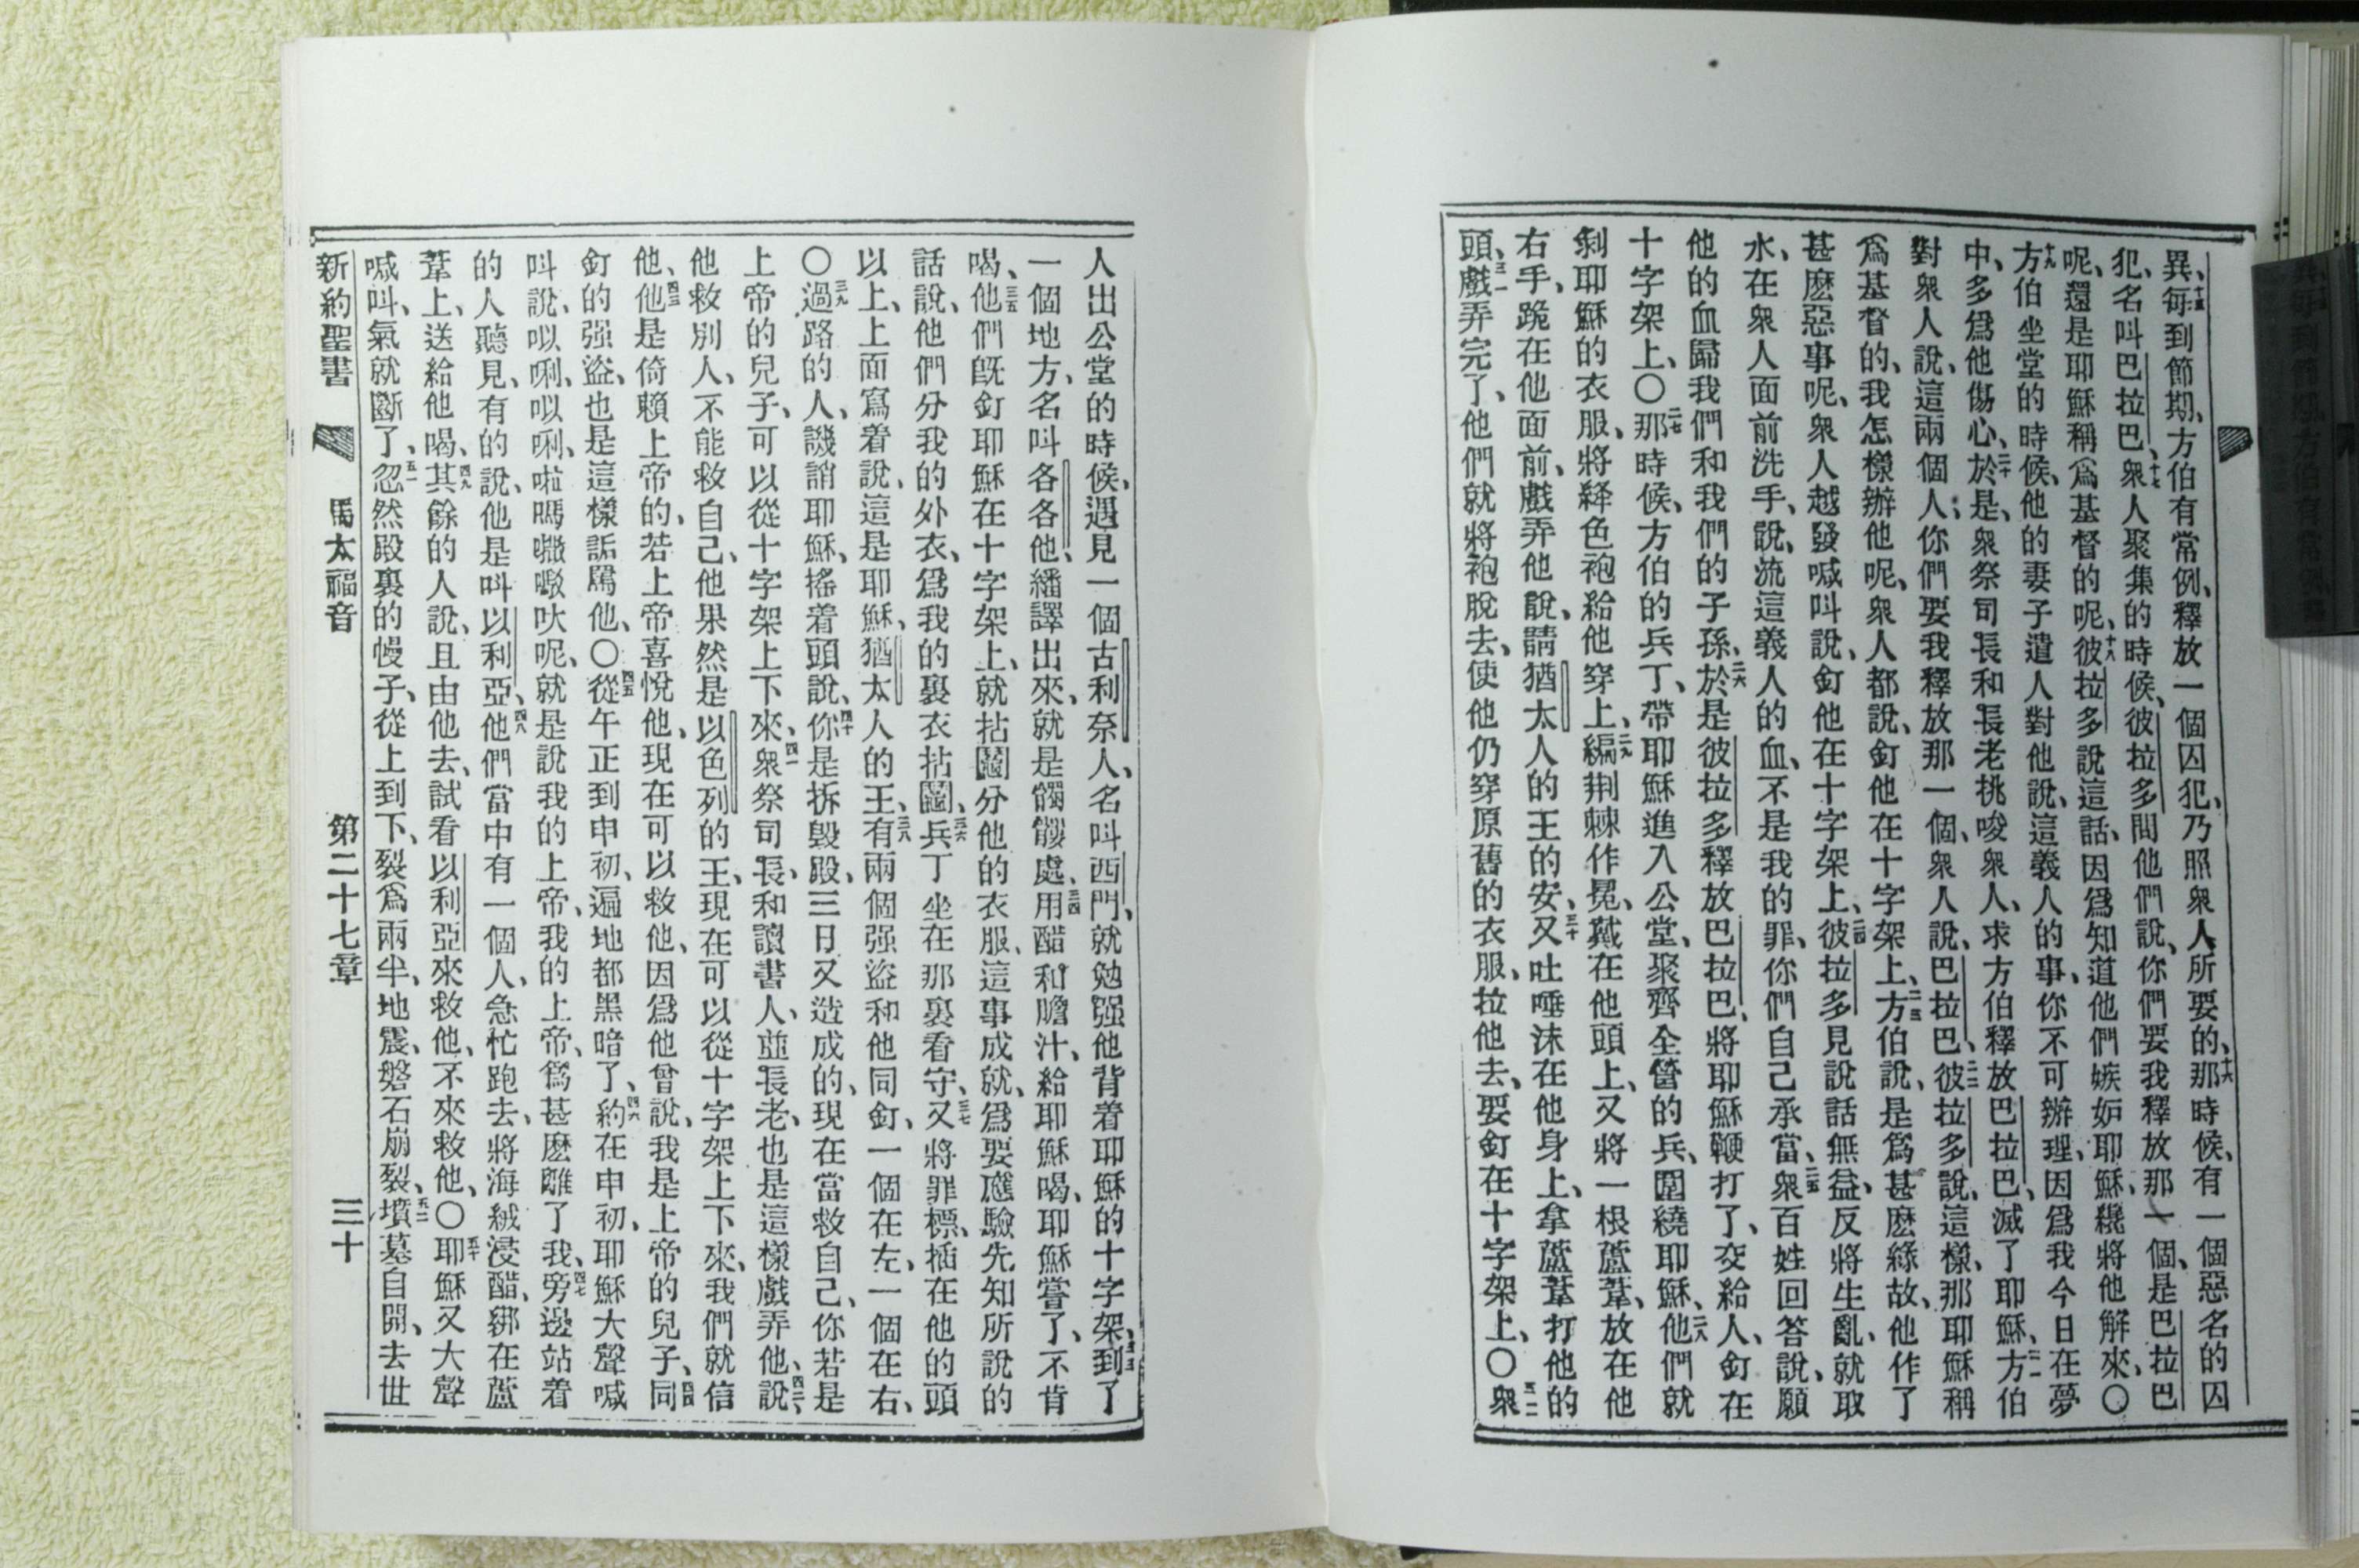 異、十五每到節期、方伯有常例、釋放一個囚犯、乃照衆人所要的、十六那時候、有一個惡名的囚
犯、名叫巴拉巴、十七衆人聚集的時候、彼拉多問他們說、你們要我釋放那一個、是巴拉巴
呢、還是耶穌稱爲基督的呢、十八彼拉多說這話、因爲知道他們嫉妒耶穌、纔將他解來、〇
十九方伯坐堂的時候、他的妻子遣人對他說、這義人的事、你不可辦理、因爲我今日在夢
中、多爲他傷心、二十於是、衆祭司長和長老挑唆衆人、求方伯釋放巴拉巴、滅了耶穌、二一方伯
對衆人說、這兩個人、你們要我釋放那一個、衆人說、巴拉巴、二二彼拉多說、這樣、那耶穌稱
爲基督的、我怎樣辦他呢、衆人都說、釘他在十字架上、二三方伯說、是爲甚麽緣故、他作了
甚麽惡事呢、衆人越發喊叫說、釘他在十字架上、二四彼拉多見說話無益、反將生亂、就取
水、在衆人面前洗手、說、流這義人的血、不是我的罪、你們自己承當、二五衆百姓回答說、願
他的血歸我們和我們的子孫、二六於是彼拉多釋放巴拉巴、將耶穌鞭打了、交給人、釘在
十字架上、〇二七那時候、方伯的兵丁、帶耶穌進入公堂、聚齊全營的兵、圍繞耶穌、二八他們就
剝耶穌的衣服、將絳色袍給他穿上、二九編荆棘作冕、戴在他頭上、又將一根蘆葦、放在他
右手、跪在他面前、戲弄他說、請猶太人的王的安、三十又吐唾沫在他身上、拿蘆葦打他的
頭、三一戲弄完了、他們就將袍脫去、使他仍穿原舊的衣服、拉他去、要釘在十字架上、〇三二衆
人出公堂的時候、遇見一個古利奈人、名叫西門、就勉强他背着耶穌的十字架、三三到了
一個地方、名叫各各他、繙譯出來、就是髑髏處、三四用醋和膽汁、給耶穌喝、耶穌嘗了、不肯
喝、三五他們旣釘耶穌在十字架上、就拈鬮分他的衣服、這事成就、爲要應驗先知所說的
話、說、他們分我的外衣、爲我的裏衣拈鬮、三六兵丁坐在那裏看守、三七又將罪標、插在他的頭
以上、上面寫着說、這是耶穌、猶太人的王、三八有兩個强盜和他同釘、一個在左、一個在右、
〇三九過路的人、譏誚耶穌、搖着頭說、四十你是拆毀殿、三日又造成的、現在當救自己、你若是
上帝的兒子、可以從十字架上下來、四一衆祭司長、和讀書人、並長老、也是這樣戲弄他、說、四二
他救別人、不能救自己、他果然是以色列的王、現在可以從十字架上下來、我們就信
他、四三他是倚賴上帝的、若上帝喜悅他、現在可以救他、因爲他曾說、我是上帝的兒子、四四同
釘的强盜、也是這樣詬駡他、〇四五從午正到申初、遍地都黑暗了、四六約在申初、耶穌大聲喊
叫說、㕥唎、㕥唎、啦嗎㘔嘅吙呢、就是說我的上帝、我的上帝、爲甚麽離了我、四七旁邊站着
的人聽見、有的說、他是叫以利亞、四八他們當中有一個人、急忙跑去、將海絨浸醋、綁在蘆
葦上、送給他喝、四九其餘的人說、且由他去、試看以利亞來救他、不來救他、〇五十耶穌又大聲
喊叫、氣就斷了、五一忽然殿裏的幔子、從上到下、裂爲兩半、地震、磐石崩裂、五二墳墓自開、去世
新約聖書 馬太福音 第二十七章 三十